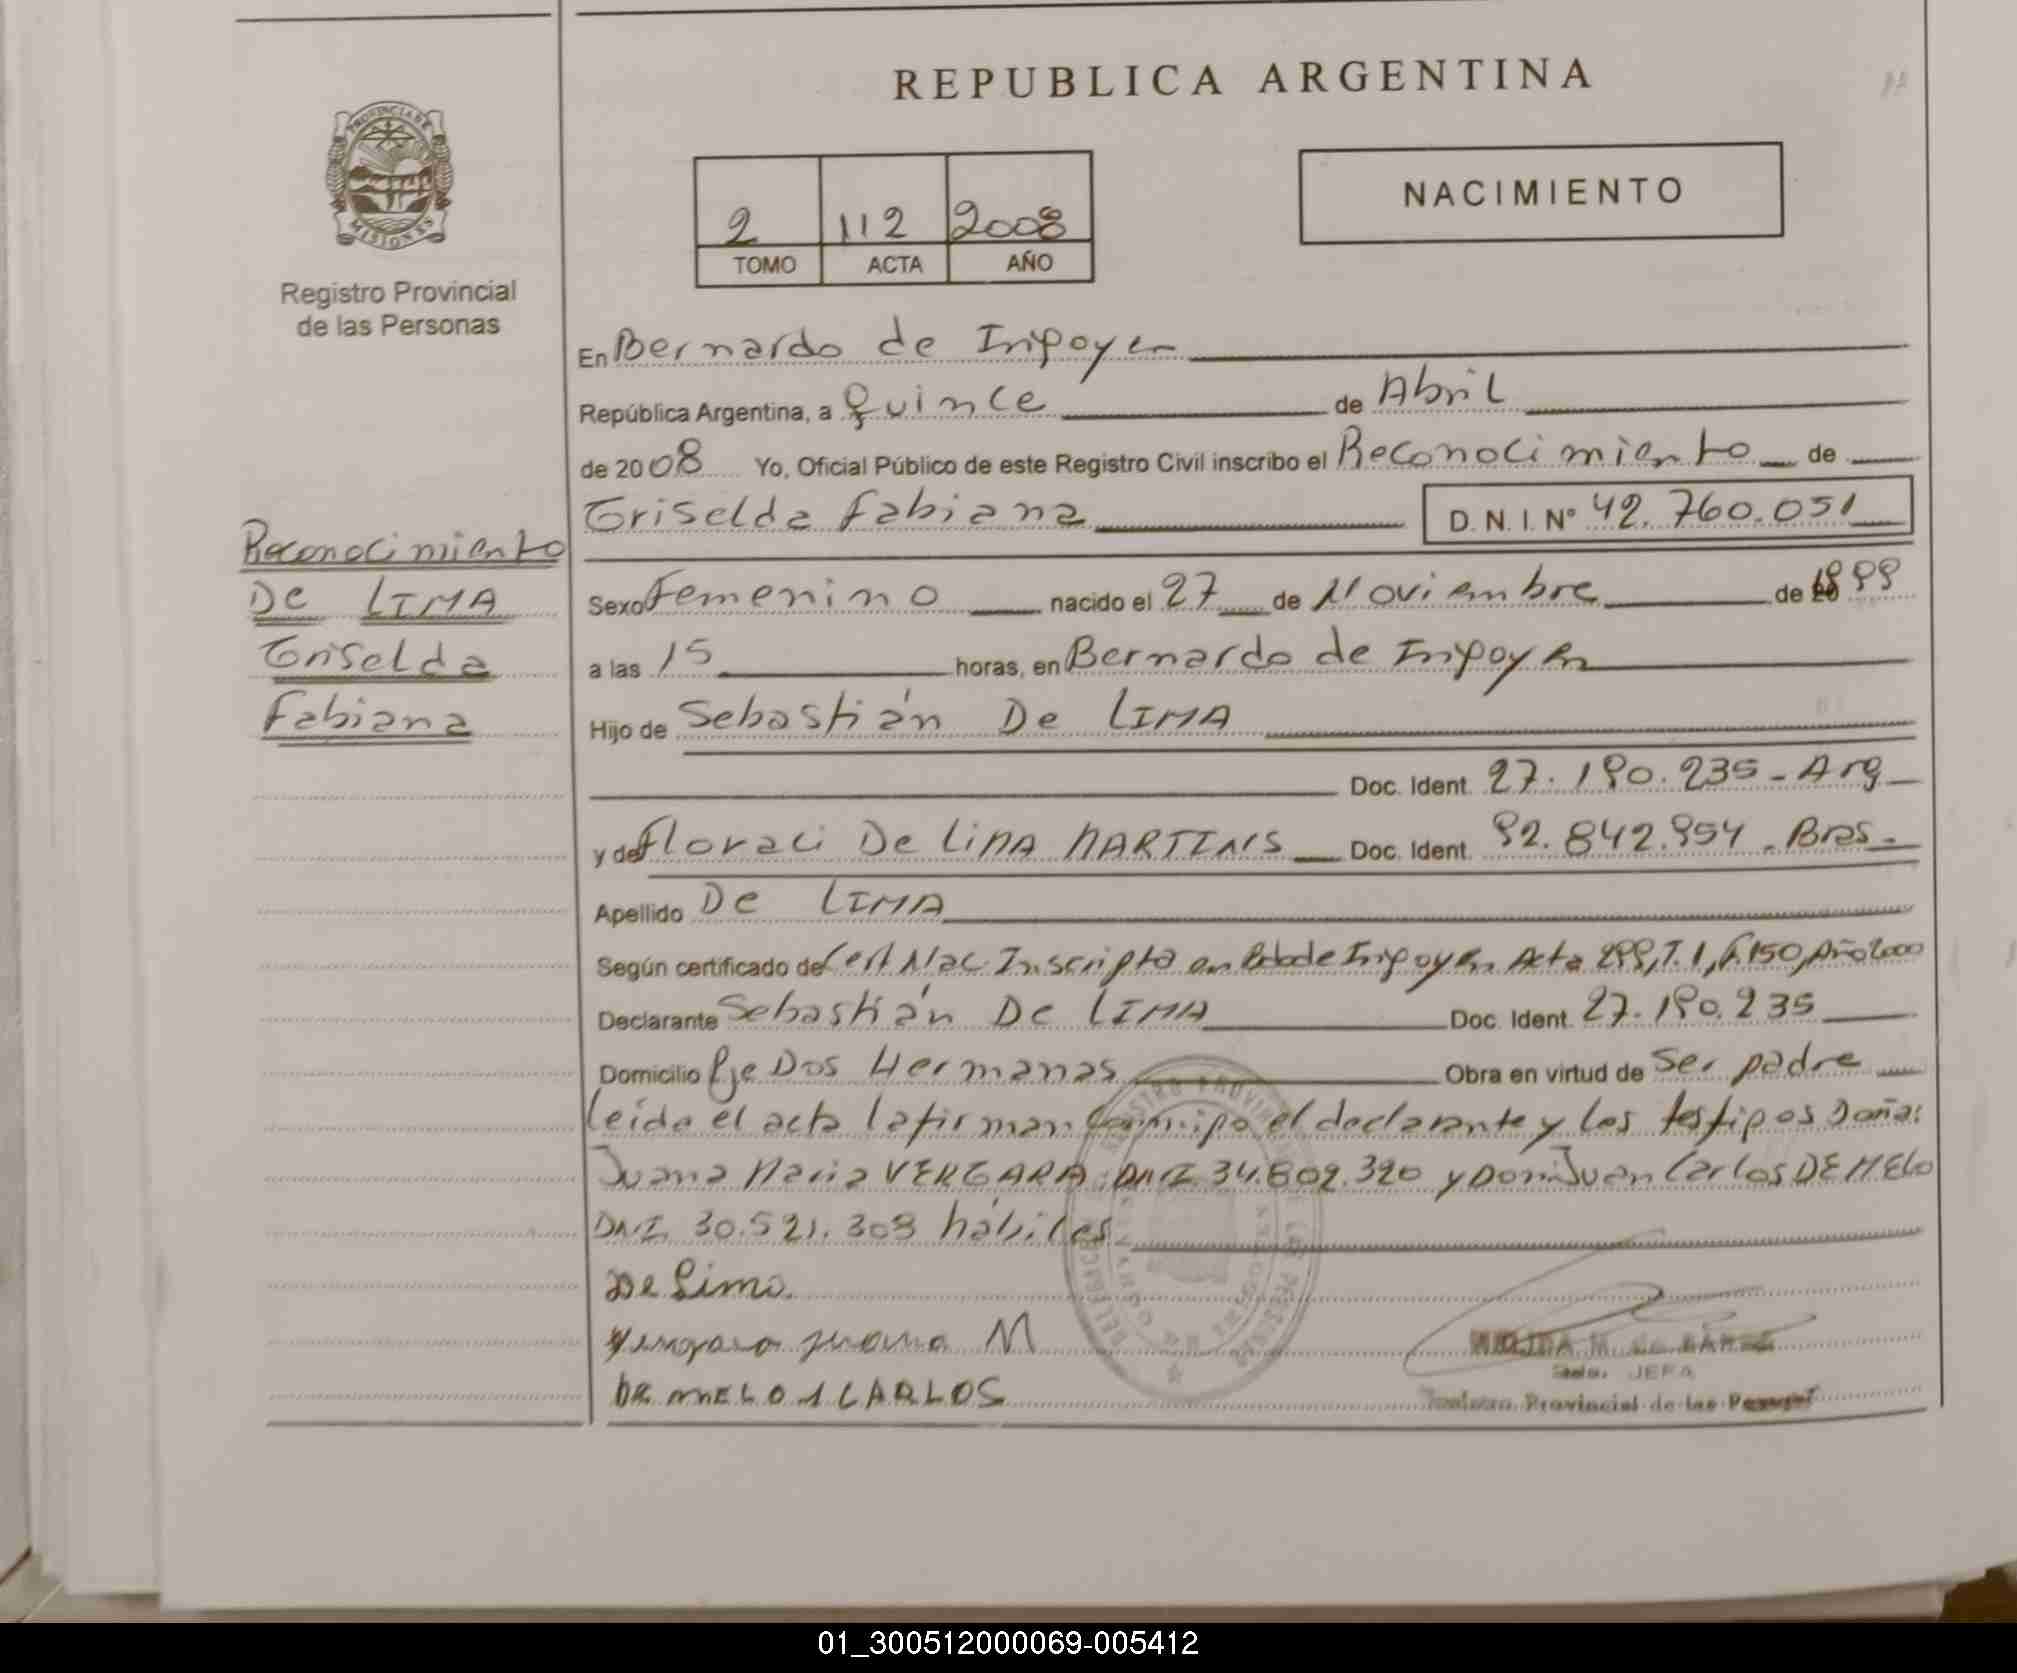 REPUBLICA ARGENTINA
PROVINCIA DE
MISIONES
Registro Provincial
de las Personas
2 112 2008
TOMO ACTA AÑO
NACIMIENTO
En Bernardo de Irigoyen
República Argentina, a quince de Abril
de 2008 Yo, Oficial Público de este Registro Civil inscribo el Reconocimiento de
Griselda Fabiana D.N.I. Nº 42.760.051
Reconocimiento
De LIMA
Griselda
Fabiana
Sexo Femenino nacido el 27 de Noviembre de 1999
a las 15 horas, en Bernardo de Irigoyen
Hijo de Sebastián De LIMA
Doc. Ident. 27.190.235 - Arg
y de Floraci De LIMA MARTINS Doc. Ident. 92.842.954 - Bras -
Apellido De LIMA
Según certificado de Cert Nac Inscripta en Bdo de Irigoyen Acta 299, T. 1, F. 150, Año 2000
Declarante Sebastián De LIMA Doc. Ident. 27.190.235
Domicilio Pje Dos Hermanas Obra en virtud de ser padre
leída el acta la firman conmigo el declarante y los testigos Doña:
Juana Maria VERGARA, DNI 34.802.320 y Don: Juan Carlos DE MELO
DNI 30.521.303 hábiles
De Lima
Vergara Juana M
DE MELO J CARLOS
JEFA
Registro Provincial de las Personas
01_300512000069-005412